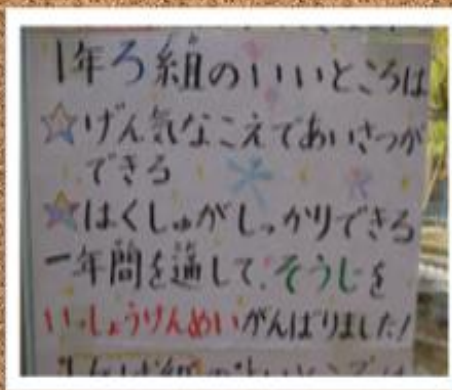 1年ろ組のいいところは
☆げん気なこえであいさつが
できる
☆はくしゅがしっかりできる
一年間を通して、そうじを
いっしょうけんめいがんばりました!